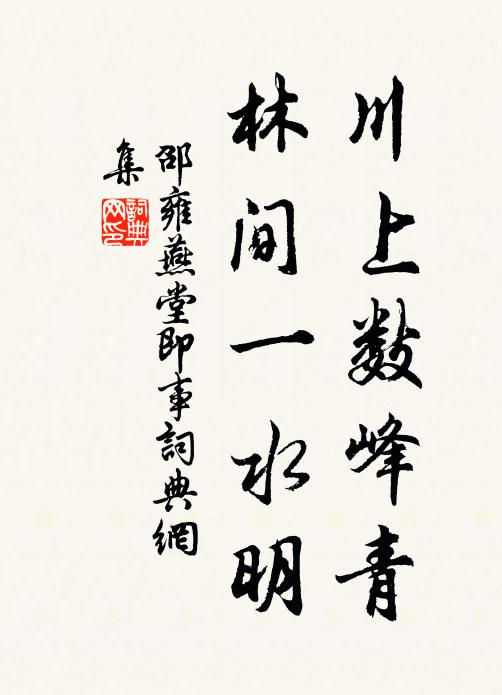 川上數峰青
林間一水明
邵雍燕堂即事詞典網
集
詞典
网印